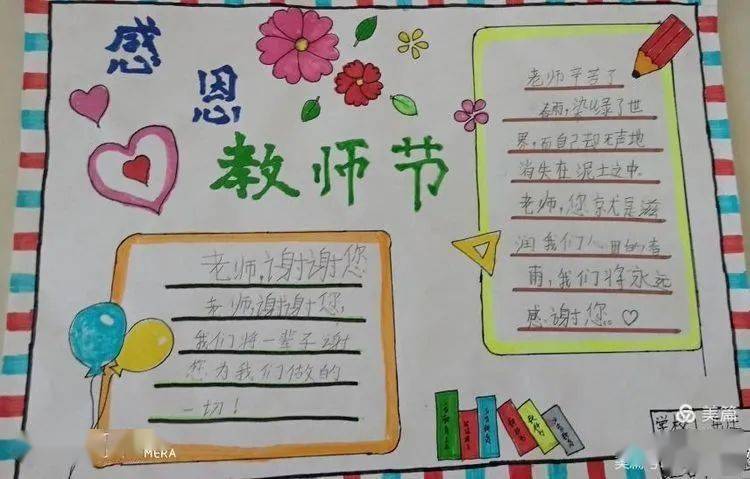 感
恩
教师节
老师辛苦了
春雨,染绿了世
界,而自己却无声地
消失在泥土之中。
老师,您就是滋
润我们心田的春
雨,我们将永远
感谢您。
老师,谢谢您
老师,谢谢您,
我们将一辈子谢
您为我们做的
一切!
学校
美篇
MERA